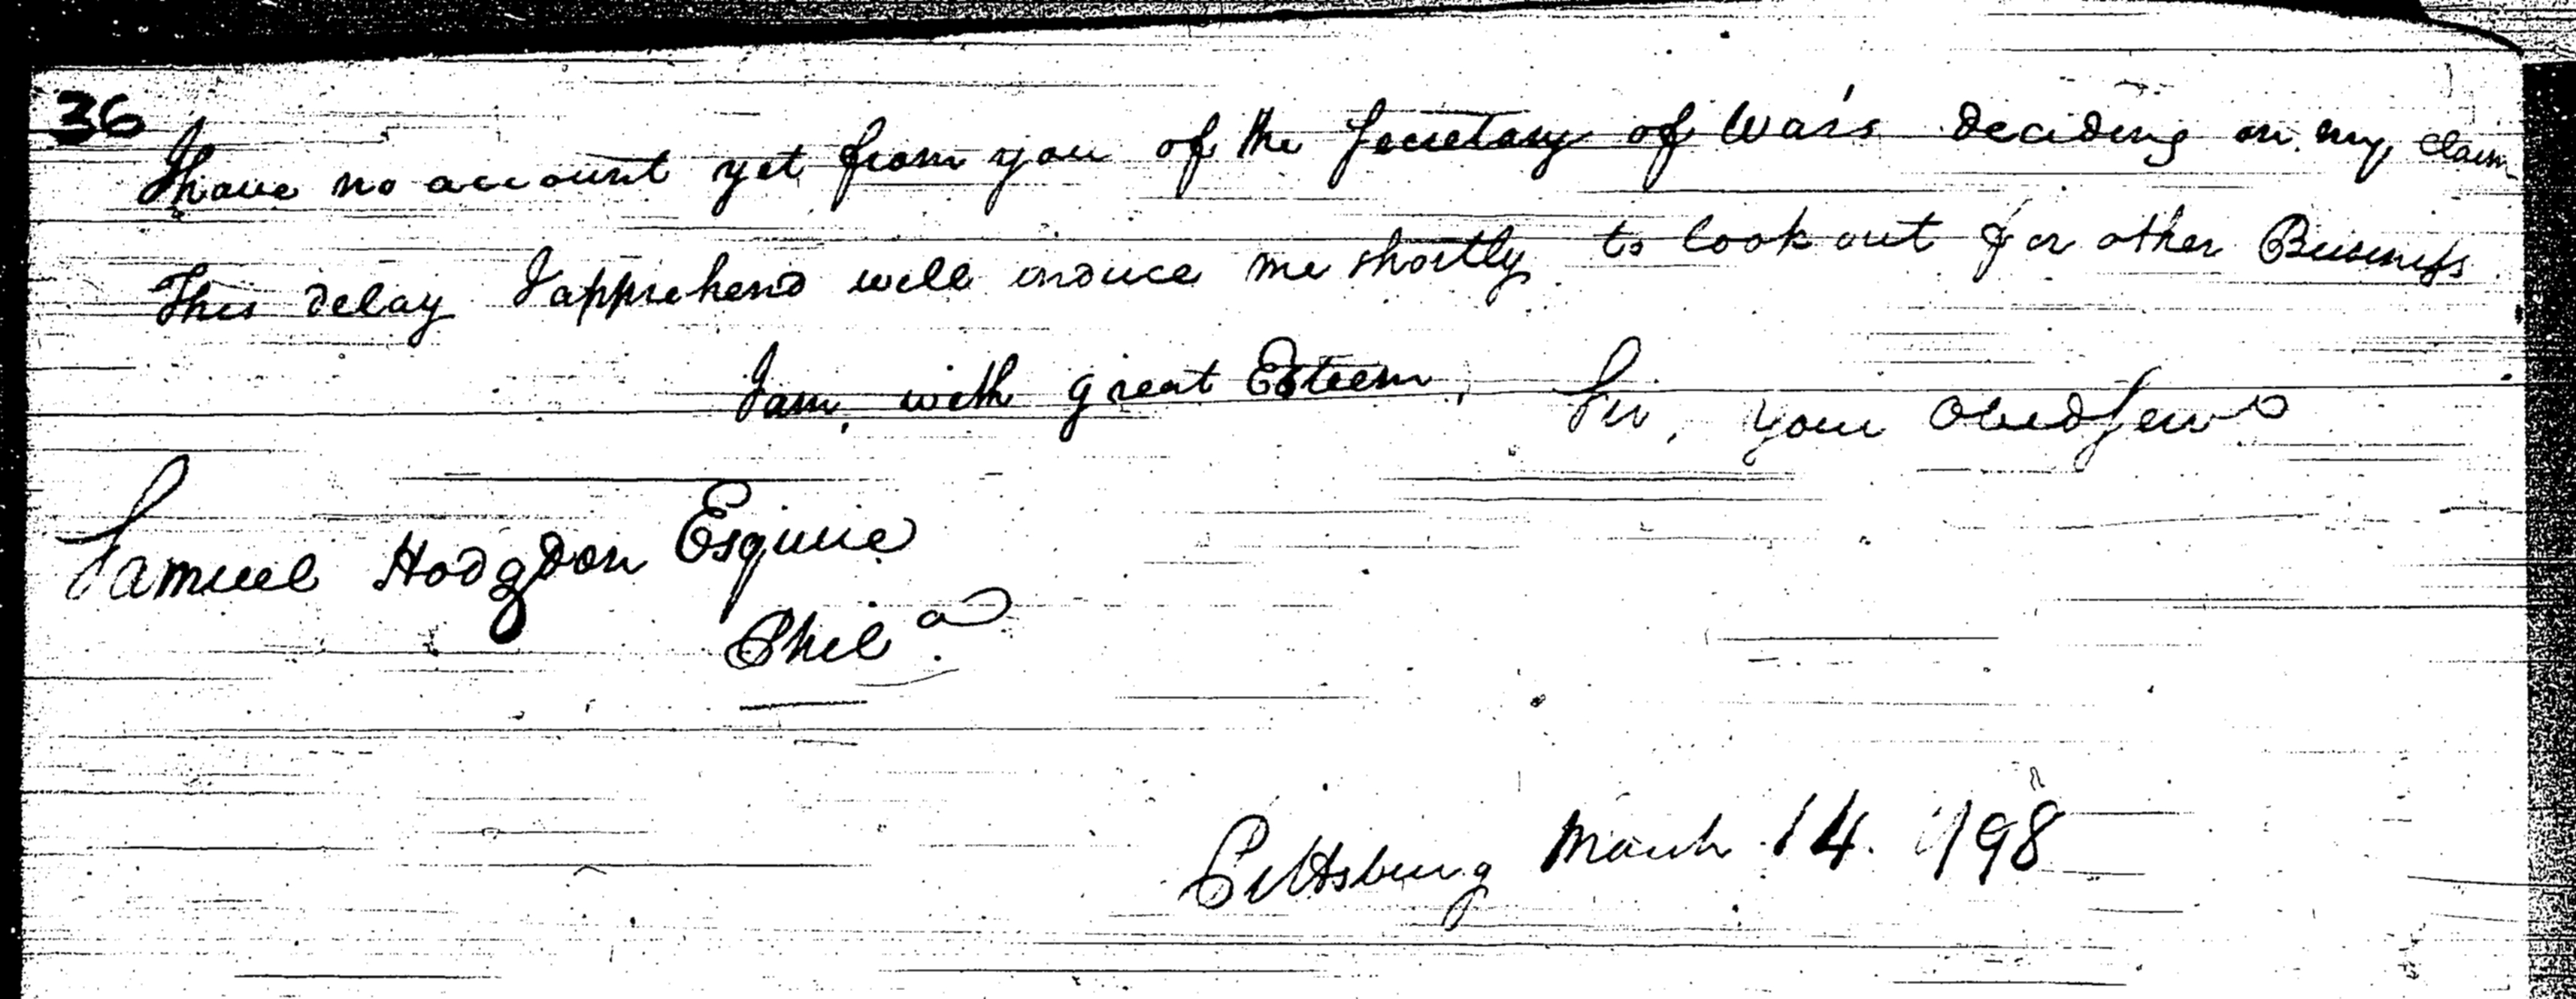 36
I have no account yet from you of the Secretary of War's deciding on my claim
This delay I apprehend will induce me shortly to look out for other Business
I am with great Esteem, Sir, your Obed Serv
Samuel Hodgdon Esquire
Phila.
Pittsburg March 14. 1798